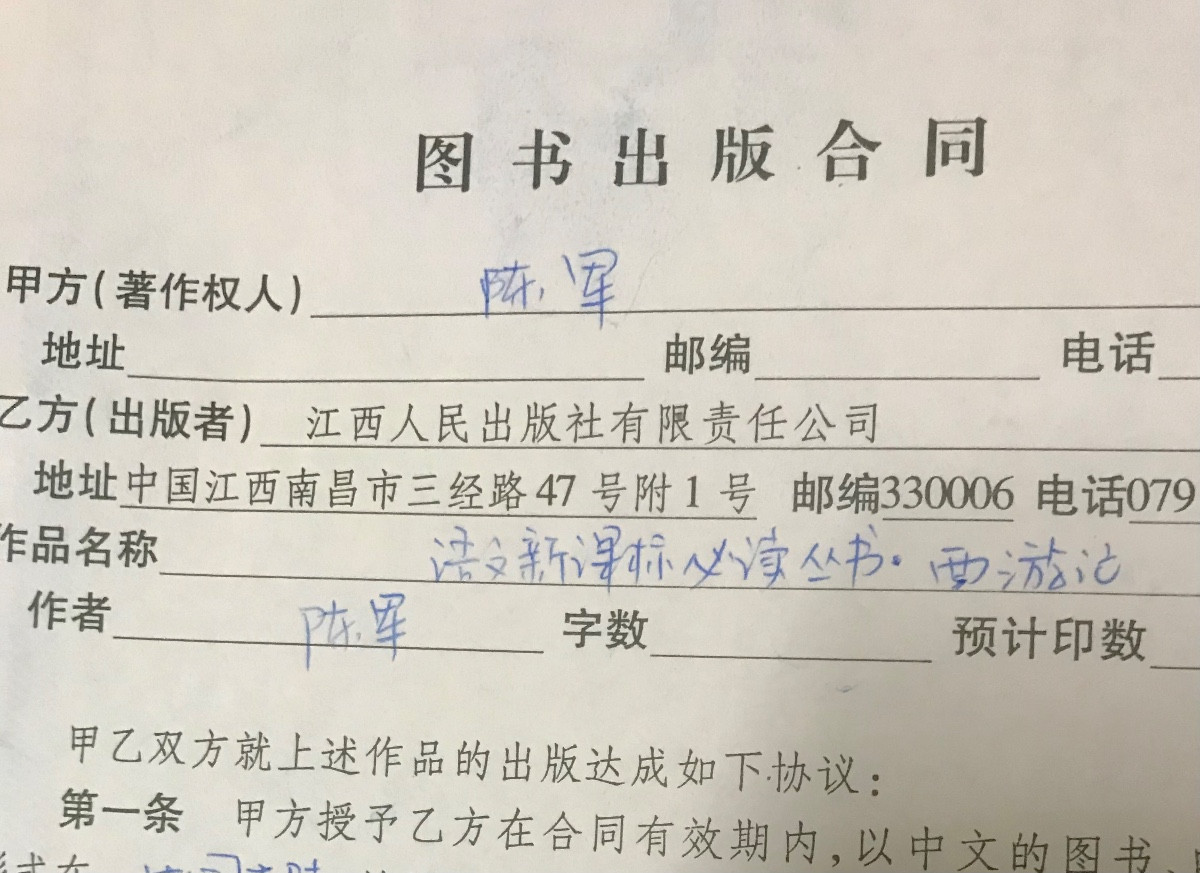 图书出版合同
甲方(著作权人) 陈军
地址 邮编 电话
乙方(出版者) 江西人民出版社有限责任公司
地址 中国江西南昌市三经路47号附1号 邮编330006 电话079
作品名称 语文新课标必读丛书·西游记
作者 陈军 字数 预计印数
甲乙双方就上述作品的出版达成如下协议：
第一条 甲方授予乙方在合同有效期内,以中文的图书、